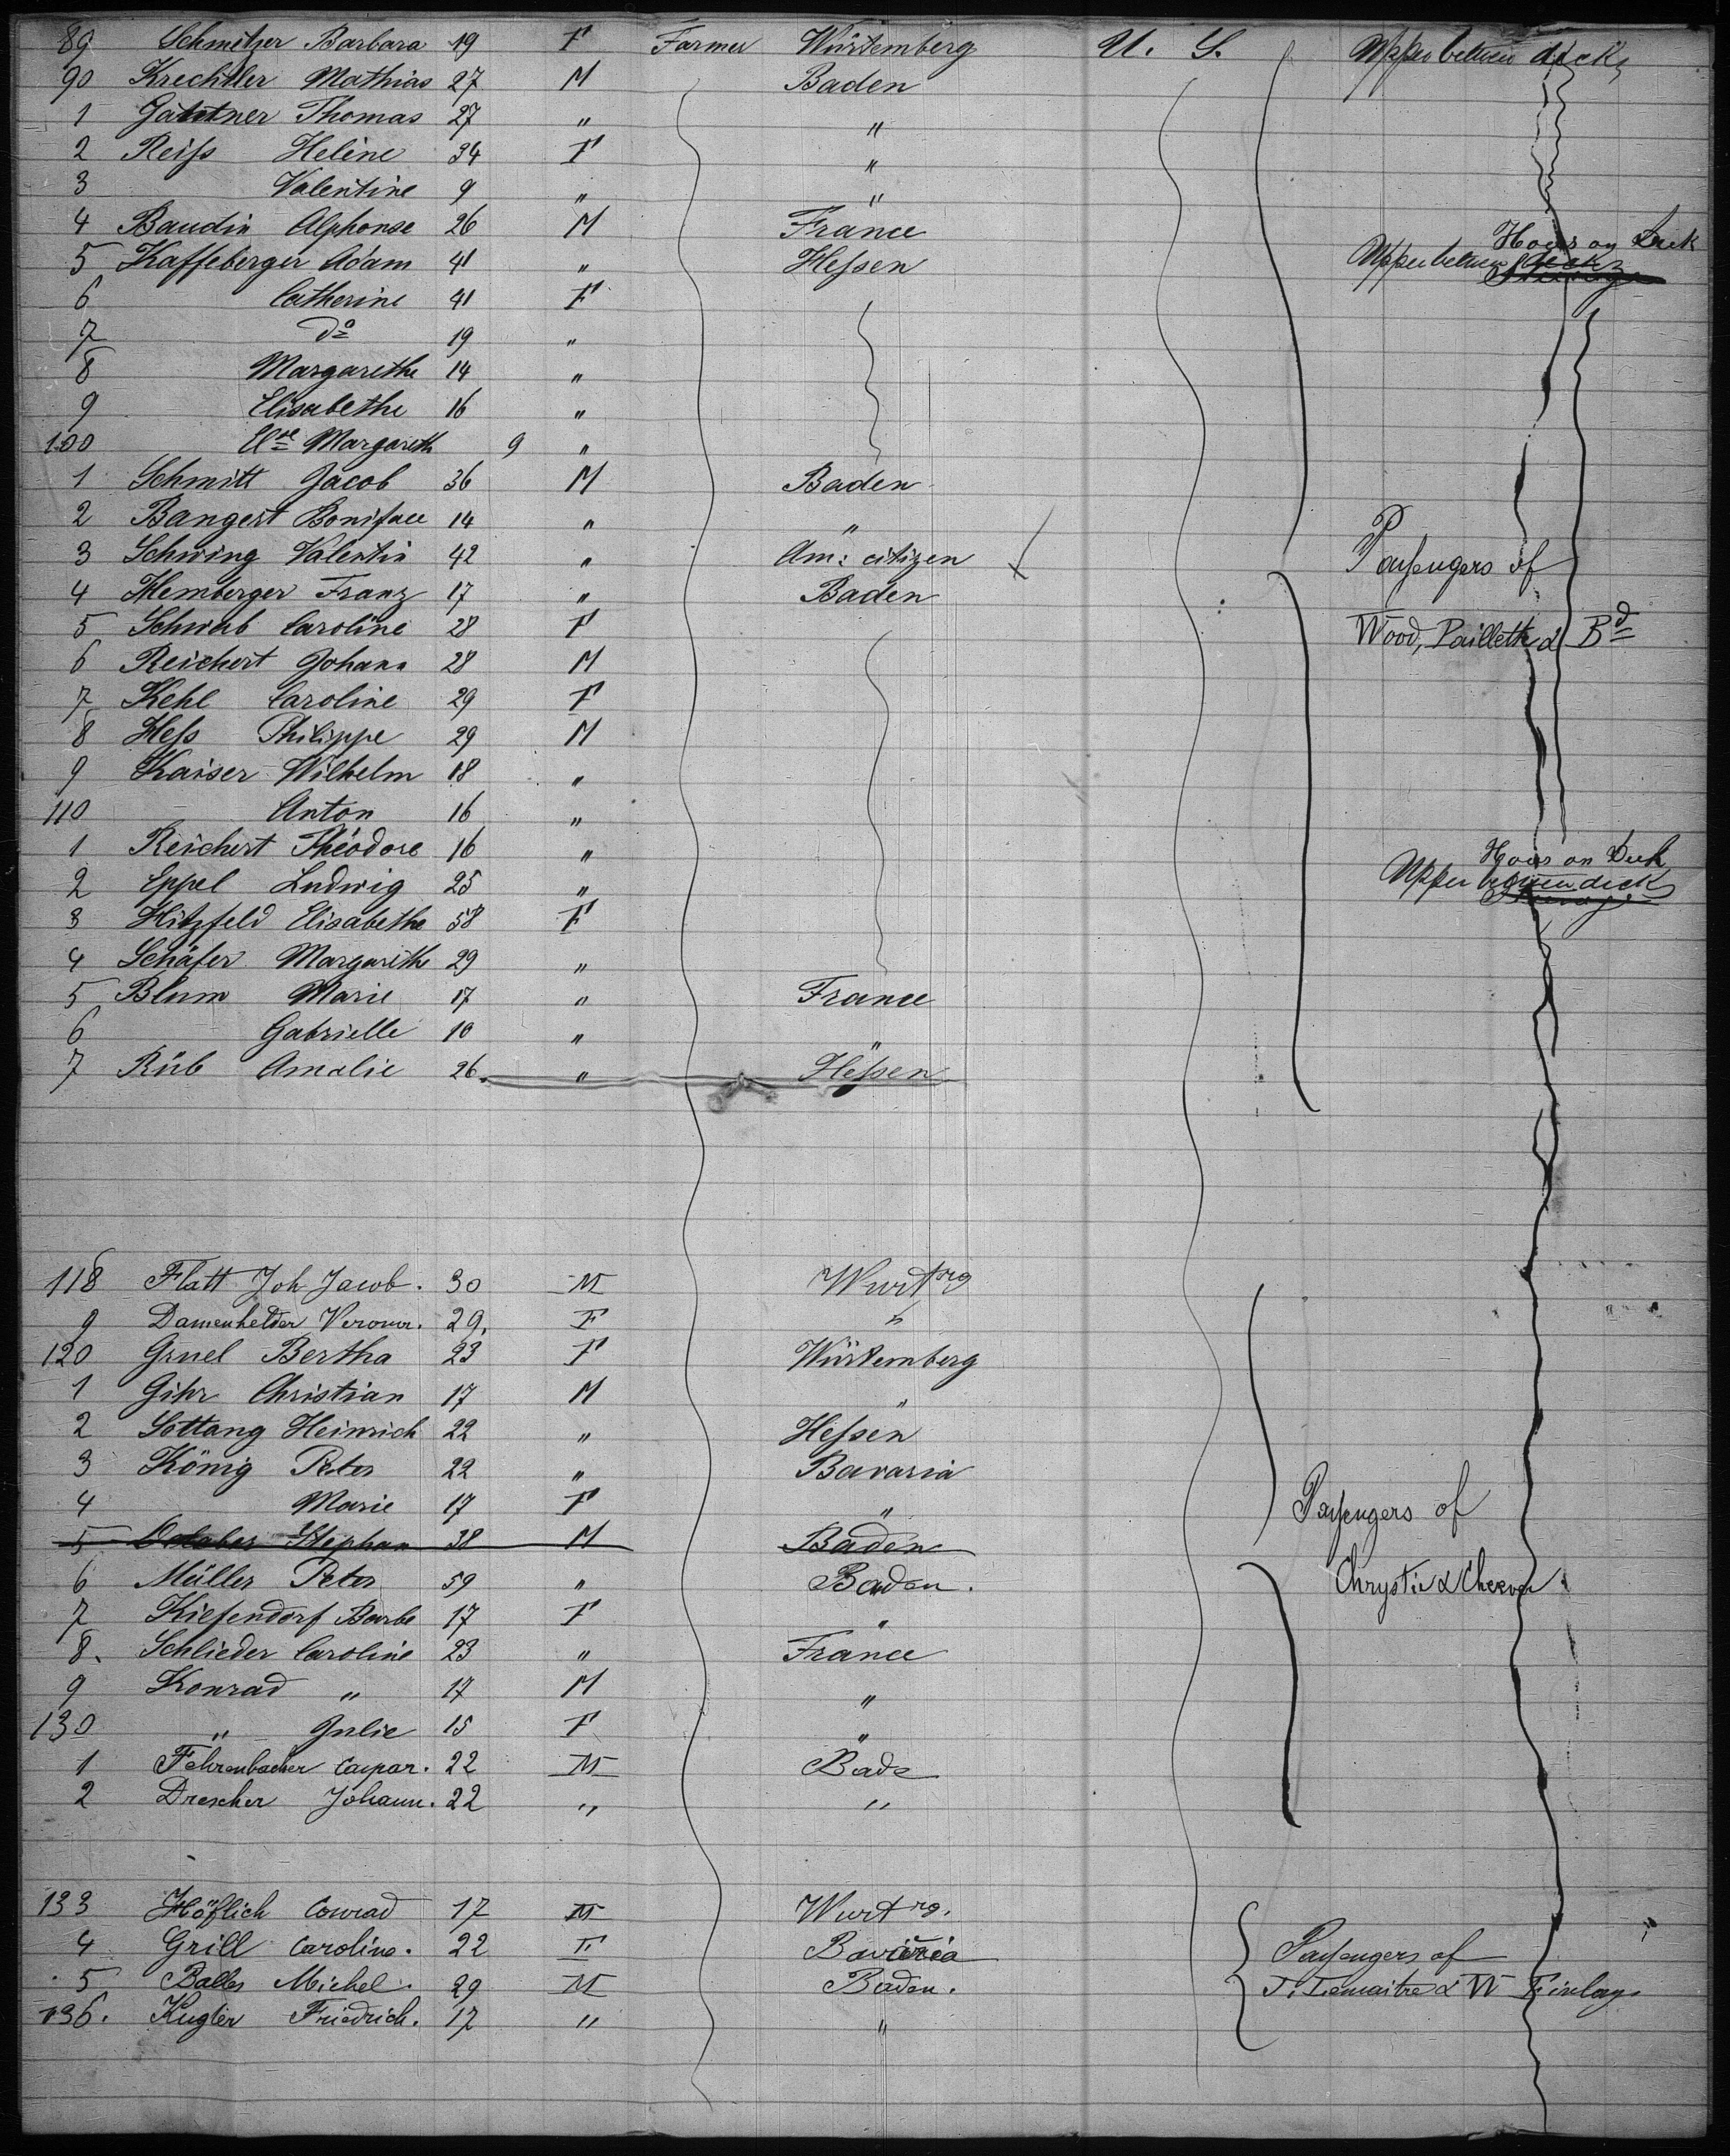 89 Schmitzer Barbara 19 F Farmer Würtemberg U. S. Upper between decks
90 Krechtler Mathias 27 M Baden
1 Gärtner Thomas 27 " "
2 Reiſs Helene 34 F "
3 Valentine 9 " "
4 Baudin Alphonse 26 M France
Hous on Deck
5 Kaffeberger Adam 41 " Heſsen Upper between decks
6 Catherine 41 F
7 do 19 "
8 Margarethe 14 "
9 Elisabethe 16 "
100 Margareth 9 "
1 Schmitt Jacob 36 M Baden
2 Bangert Boniface 14 " "
3 Schwing Valentin 42 " Am: citizen Paſsengers of
4 Hemberger Franz 17 " Baden
5 Schwab Caroline 28 F Wood, Paillette & Bd
6 Reichert Johann 28 M
7 Kehl Caroline 29 F
8 Heſs Philippe 29 M
9 Kaiser Wilhelm 18 "
110 Anton 16 "
1 Reichert Théodore 16 " Hous on Deck
2 Eppel Ludwig 25 " Upper between decks
3 Hitzfeld Elisabethe 58 F
4 Schäfer Margarethe 29 "
5 Blum Marie 17 " France
6 Gabrielle 10 " "
7 Rüb Amalie 26 " Heſsen
118 Flatt Joh Jacob. 30 M Wurtrg
9 Damenhelder Veronir. 29. F "
120 Gruel Bertha 23 F Würtemberg
1 Gihr Christian 17 M "
2 Sottang Heinrich 22 " Heſsen
3 König Peter 22 " Bavaria
4 Marie 17 F " Paſsengers of
5 Stephan 38 M Baden
6 Müller Peter 59 " Baden. Chrystie &
7 Kiefendorf Barbe 17 F "
8. Schlieder Caroline 23 " France
9 Konrad " 17 M "
130 " Julie 15 F "
1 Fehrenbacher Caspar. 22 M Bade
2 Drescher Johann. 22 " "
133 Höflich Conrad 17 M Wurtrg.
4 Grill Caroline. 22 F Bavaria Paſsengers of
5 Balles Michel. 29 M Baden. T. Lemaitre & W Finlay.
136. Kugler Friedrich. 17 " "